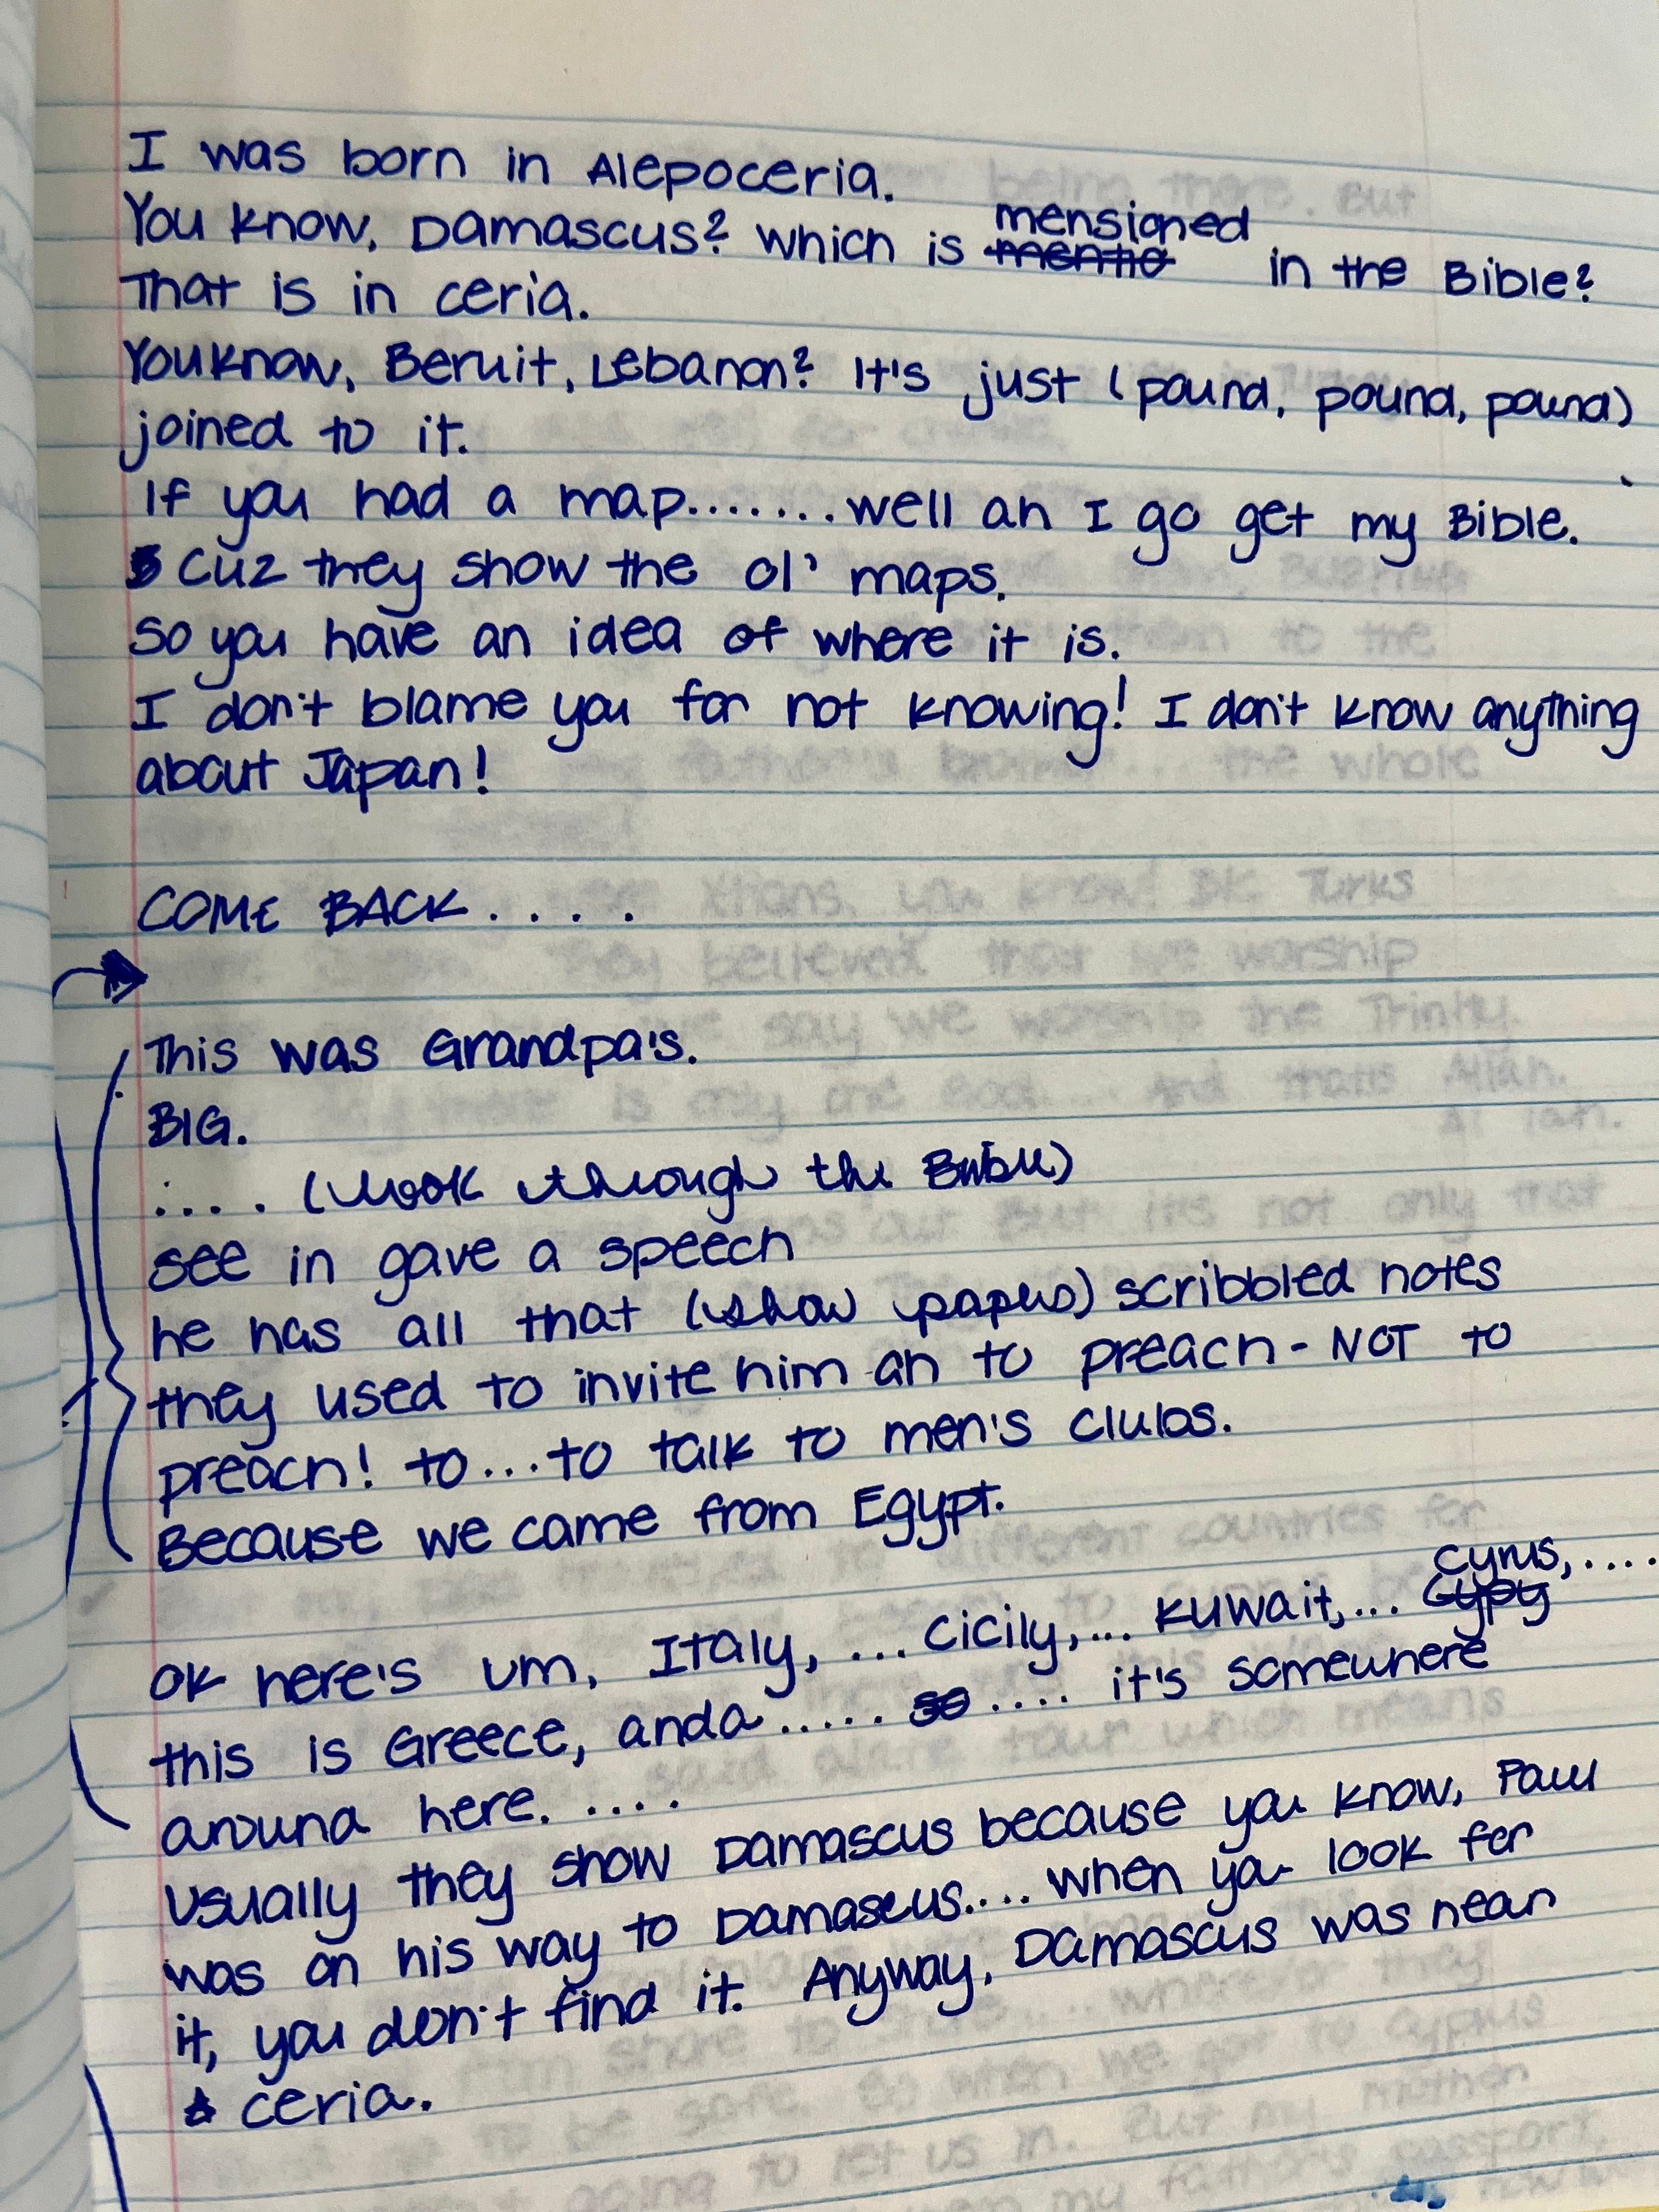 I was born in Alepoceria.
You know, Damascus? which is mensioned in the Bible?
That is in ceria.
You know, Beruit, Lebanon? It's just (pound, pound, pound)
joined to it.
If you had a map.......well an I go get my Bible.
Cuz they show the ol' maps.
So you have an idea of where it is.
I don't blame you for not knowing! I don't know anything
about Japan!
COME BACK....
This was Grandpa's.
BIG.
:... (look through the Bible)
see in gave a speech
he has all that (show papers) scribbled notes
they used to invite him an to preach - NOT to
preach! to...to talk to men's clubs.
Because we came from Egypt.
OK here's um, Italy, ... Cicily,... Kuwait,... Cyrus,....
this is Greece, anda..... .... it's somewhere
around here. ....
Usually they show Damascus because you know, Paul
was on his way to Damascus.... when ya look for
it, you don't find it. Anyway, Damascus was near
ceria.